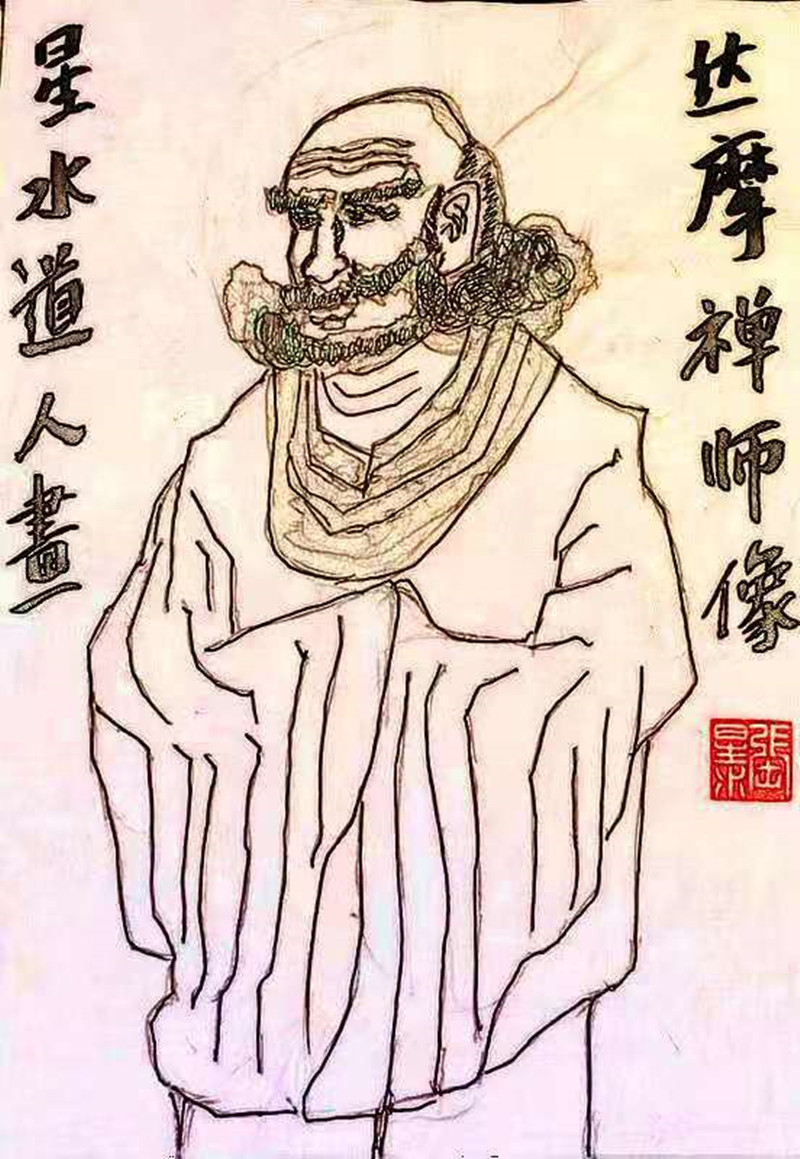 达摩禅师像
星水道人畫
星水